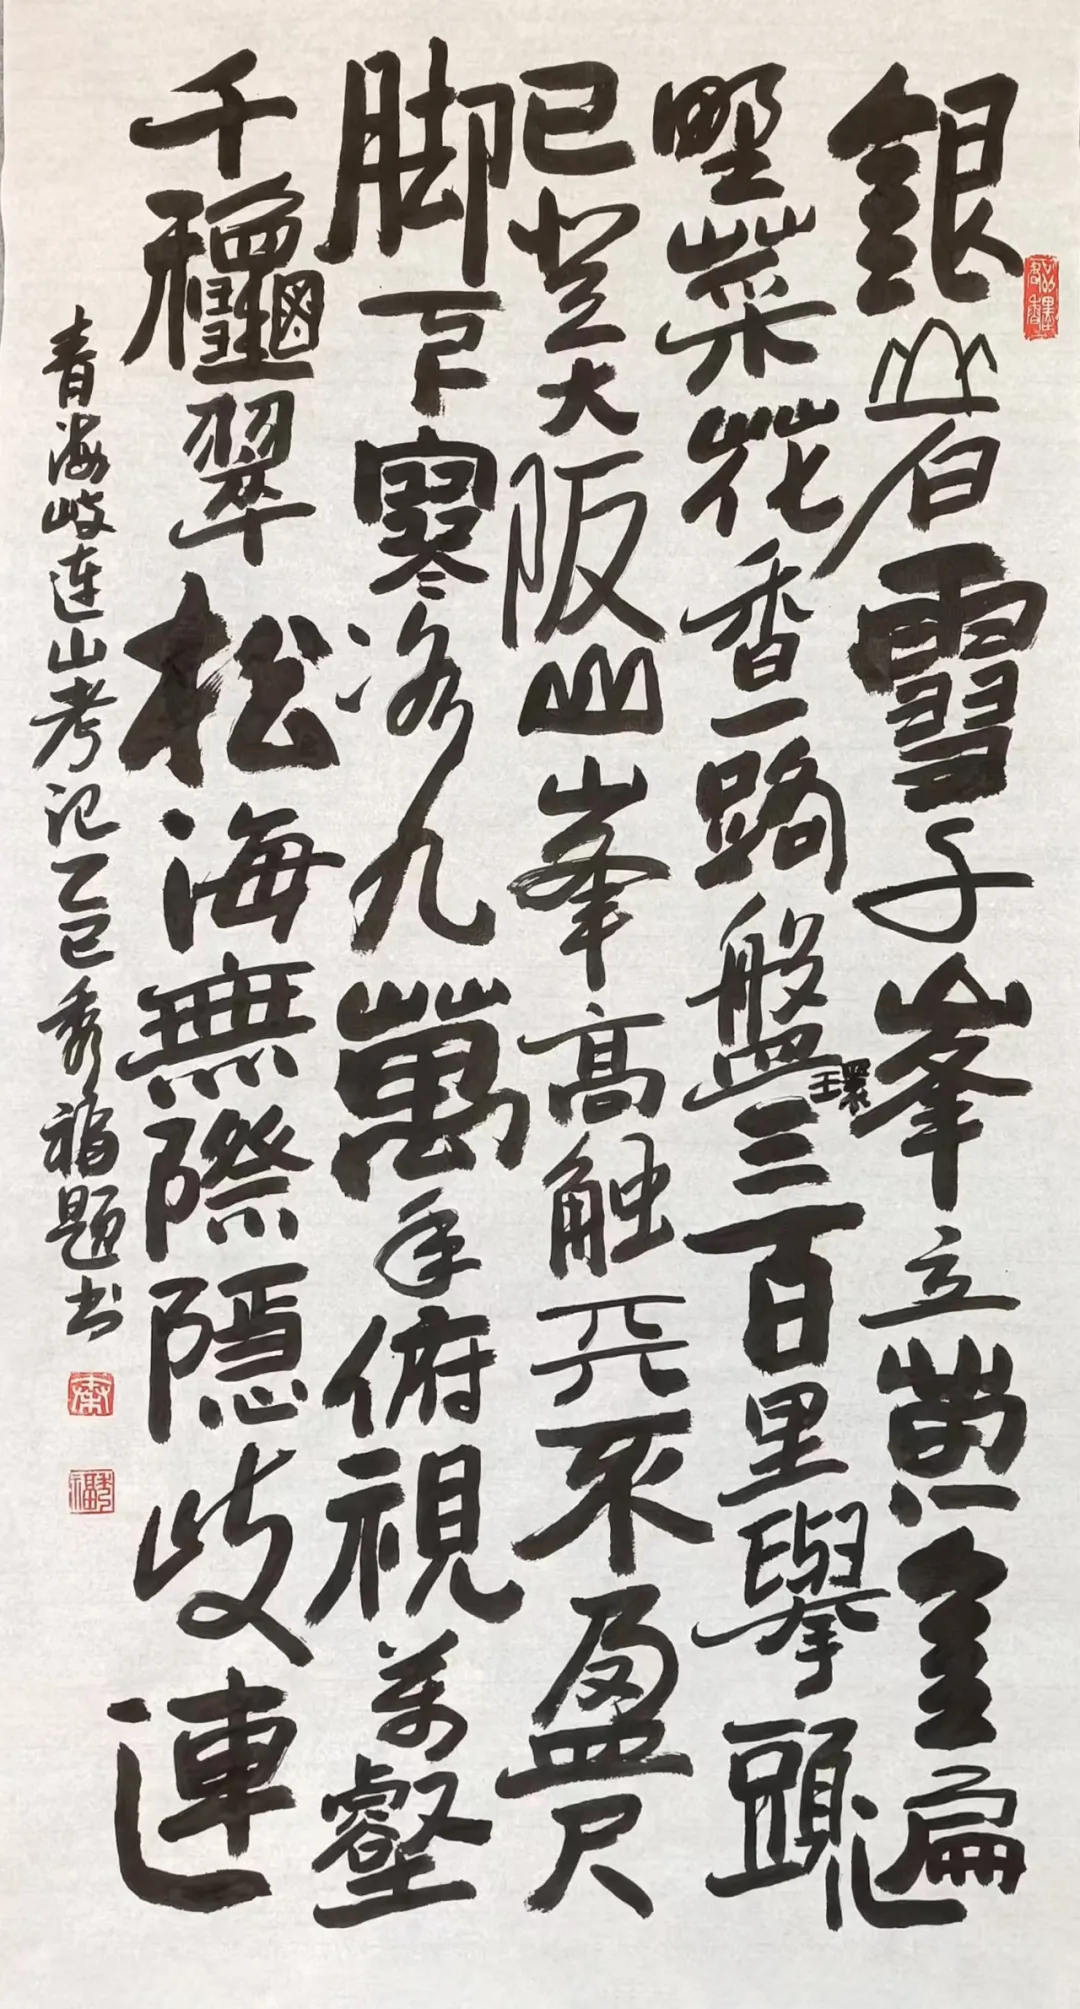 銀山白雪子峯立黄金遍
野菜花香一路盤環三百里舉頭
已登大阪山峯高触天不盈尺
脚下寒流九萬年俯視万壑
千穐翠松海無際隱岐連
青海岐连山考记乙巳秀福题书